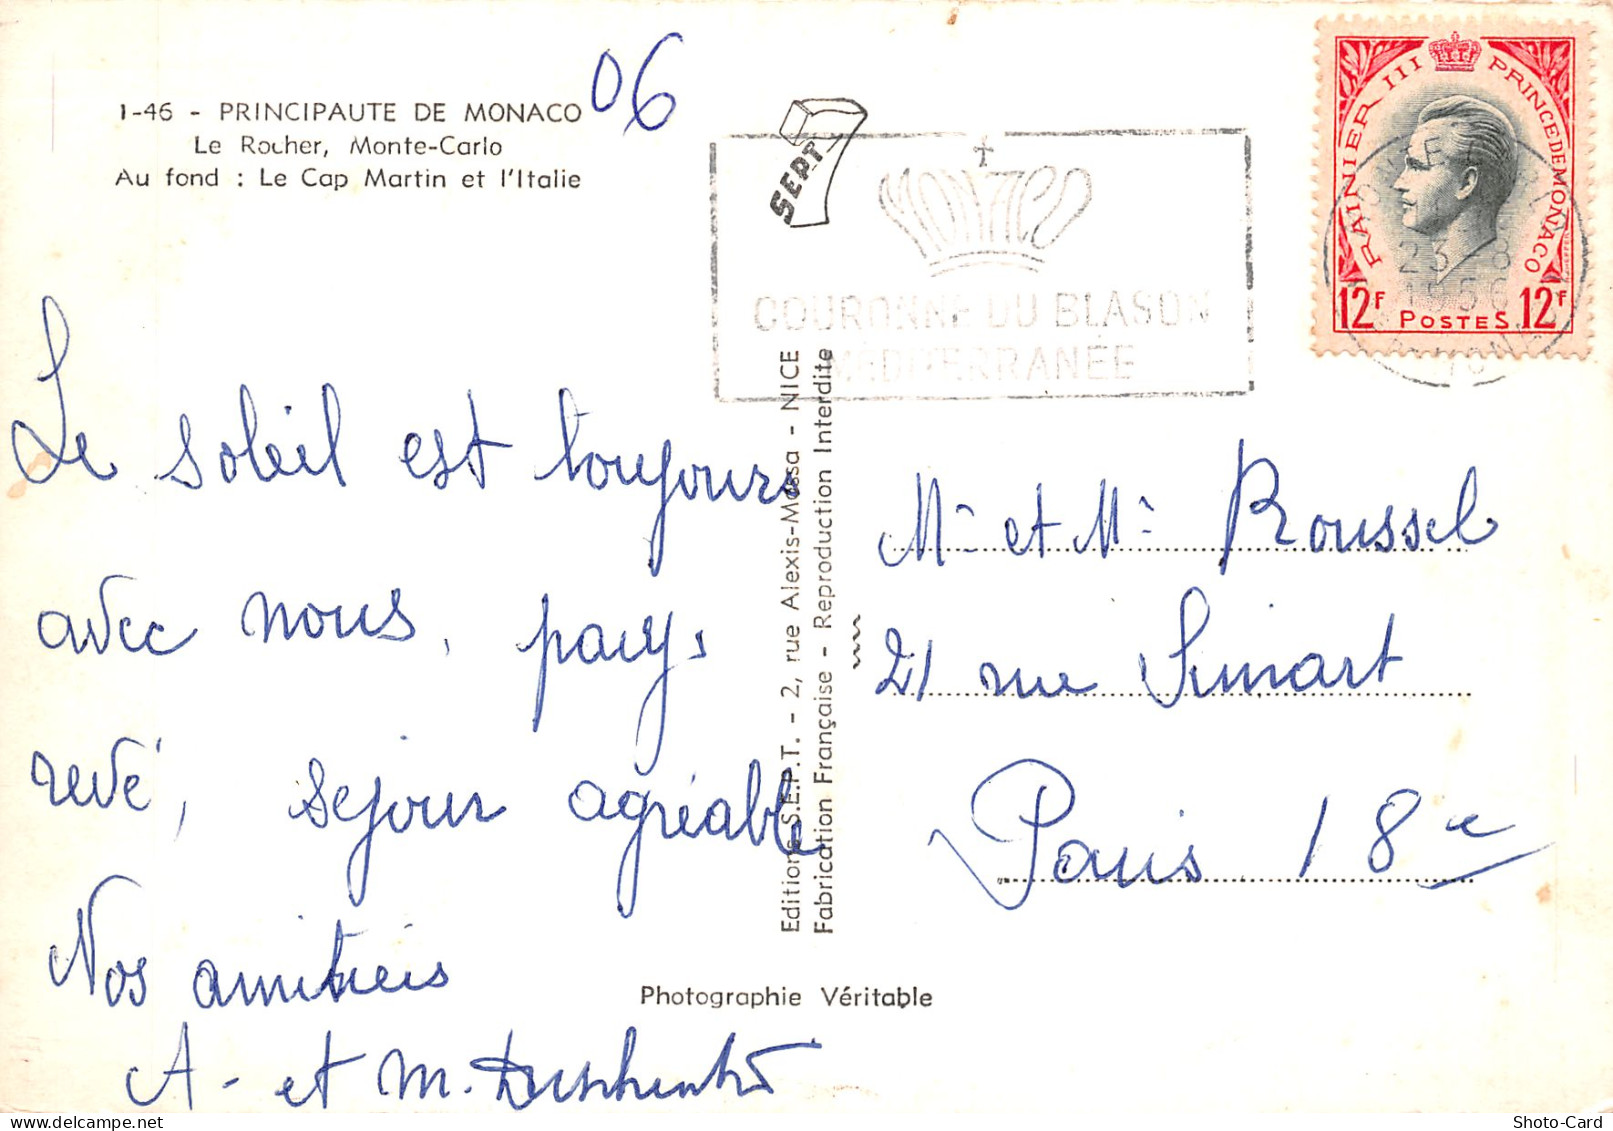 1-46 - PRINCIPAUTE DE MONACO
Le Rocher, Monte-Carlo
Au fond : Le Cap Martin et l'Italie
06
SEPT
MONACO
COURONNE DU BLASON
MÉDITERRANÉE
RAINIER III PRINCE DE MONACO
12F POSTES 12F
23 8
1956
Le soleil est toujours
avec nous, pays
revé, sejour agréable
Nos amitiés
A - et M.
Editions S.E.P.T. - 2, rue Alexis-Mossa - NICE
Fabrication Française - Reproduction Interdite
Mr et Me Roussel
21 rue Simart
Paris 18e
Photographie Véritable
Shoto-Card